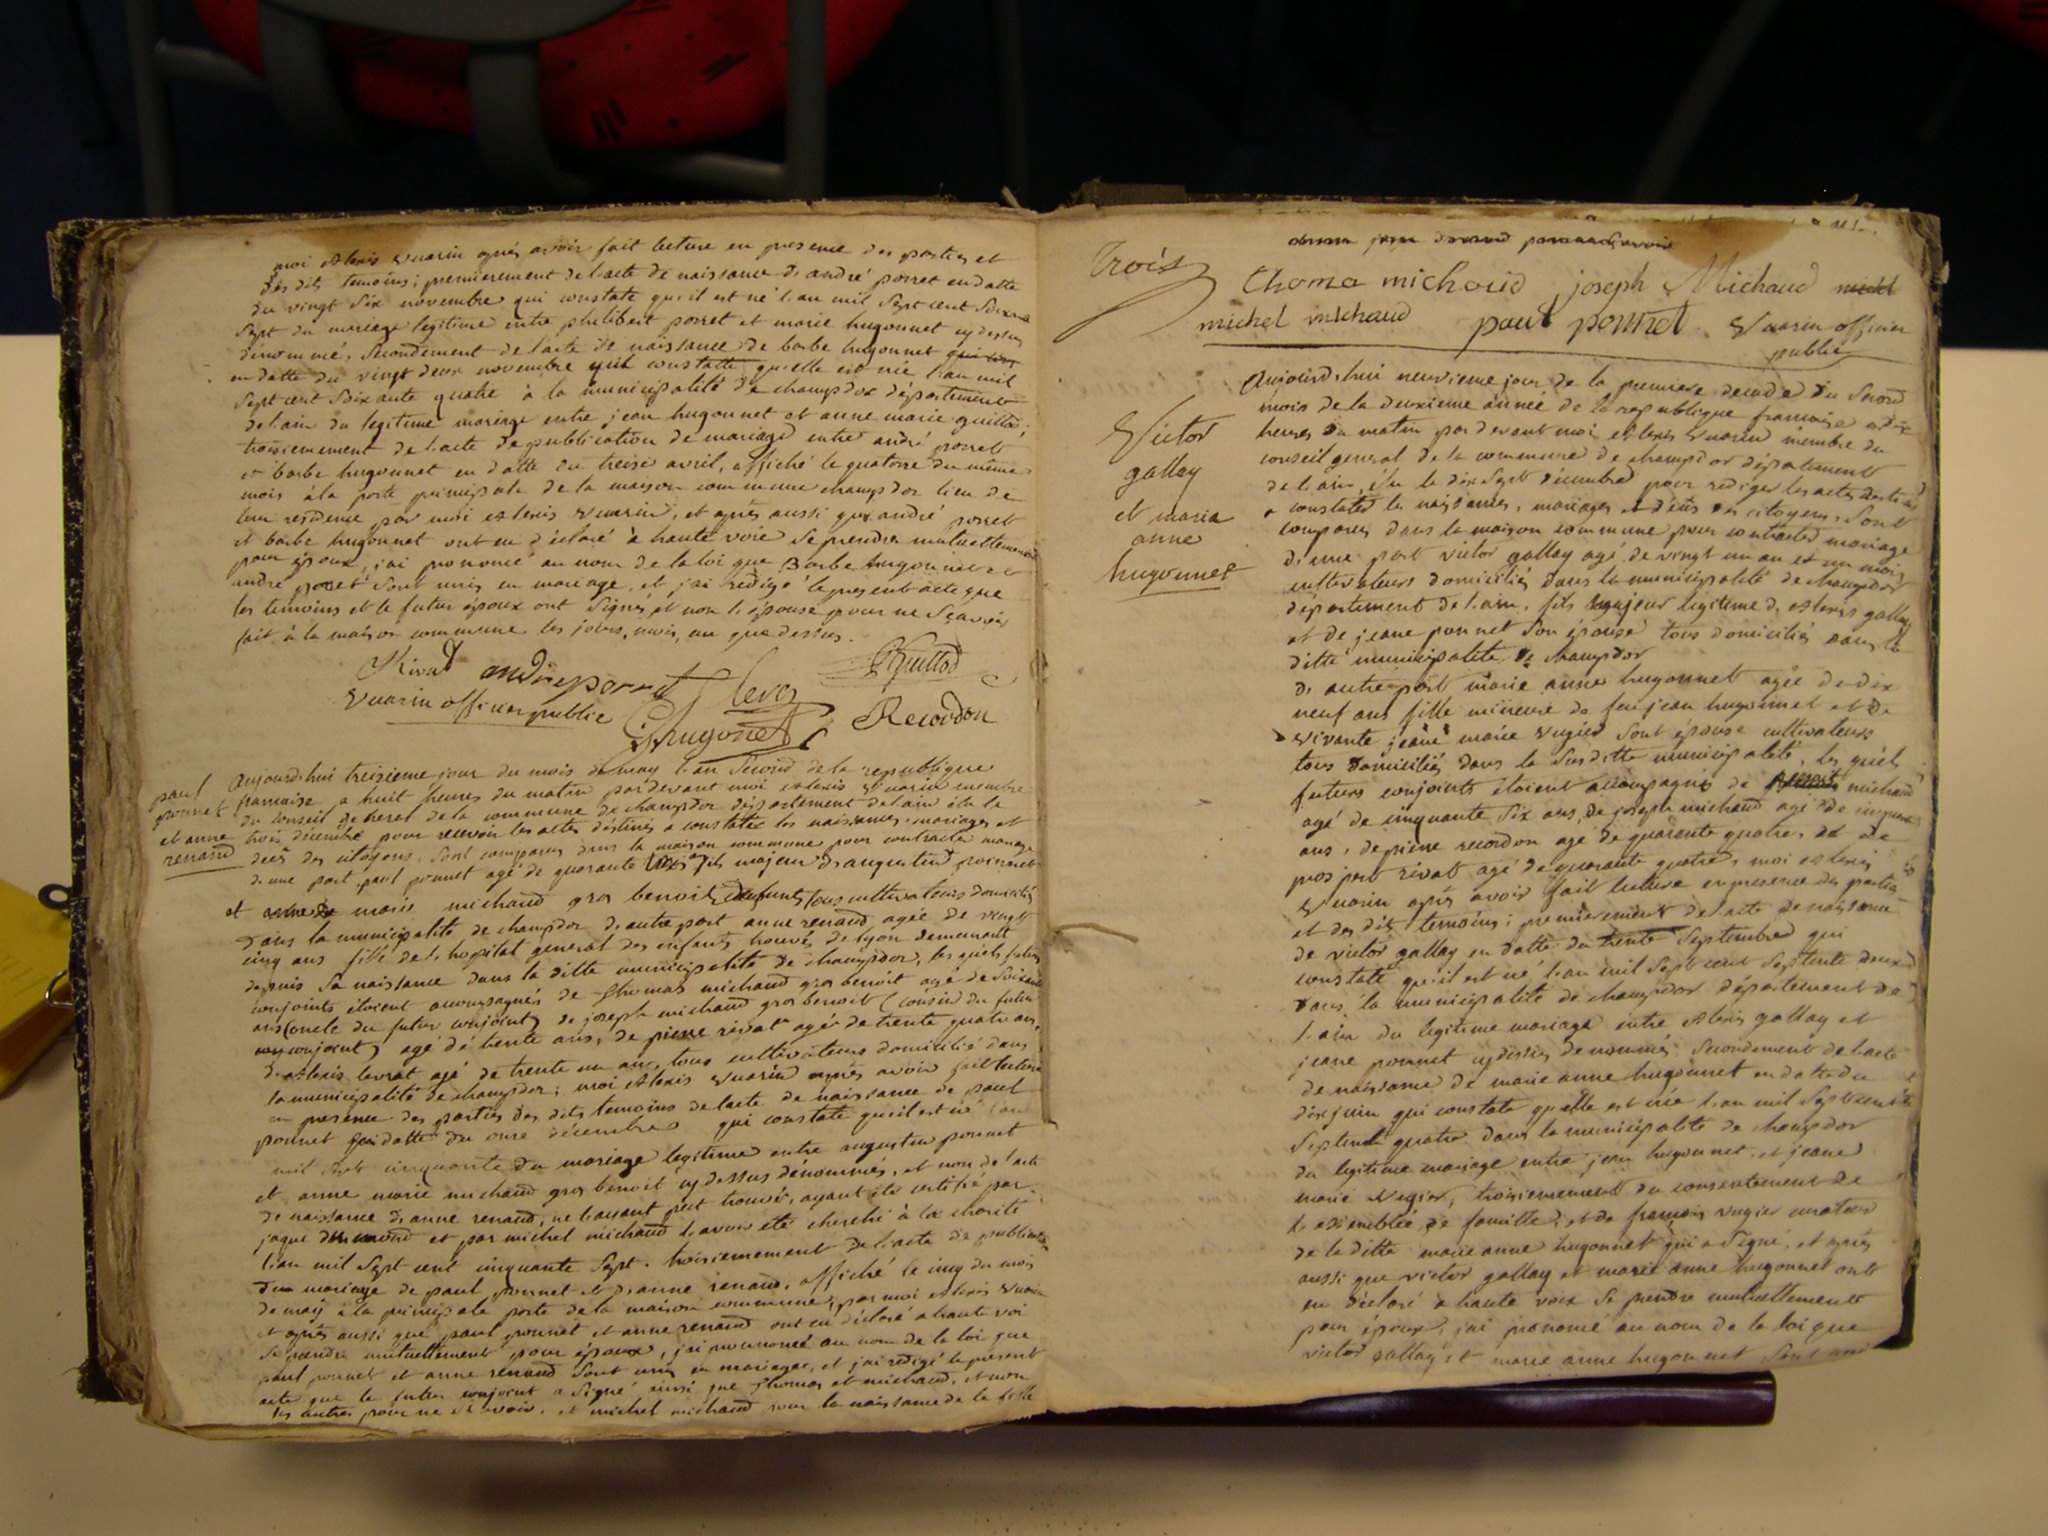 moi alexis vuarin après avoir fait lecture en presence des parties et
des dits temoins; premierement de l'acte de naissance de andré porret en datte
du vingt six novembre qui constate qu'il est né l'an mil sept cent soixante
sept du mariage legitime entre philibert porret et marie hugonnet cy dessus
denommé. secondement de l'acte de naissance de barbe hugonnet
en datte du vingt deux novembre qui constatte qu'elle est née l'an mil
sept cent soixante quatre à la municipalité de champdor département
de l'ain du legitime mariage entre jean hugonnet et anne marie guillot;
troisiemement de l'acte de publication de mariage entre andré porret
et barbe hugonnet en datte du treise avril, affiché le quatorse du meme
mois à la porte principale de la maison commune champdor lieu de
leur residence par moi alexis vuarin, et après aussi que andré porret
et barbe hugonnet ont eu déclaré à haute voix se prendre mutuellement
pour époux, j'ai prononcé au nom de la loi que Barbe hugonnet et
andré porret sont unis en mariage, et j'ai redigé le present acte que
les temoins et le futur époux ont signés et non l'épouse pour ne sçavoir
fait à la maison commune les jours, mois, an que dessus.
Rivat andre porret levra Guillod
vuarin officier public hugonet Recordon
paul
ponnet
et anne
renaud
aujourd'hui treisieme jour du mois de may l'an second de la republique
francaise a huit heures du matin par devant moi alexis vuarin membre
du conseil general de la commune de champdor département de l'ain élu le
trois décembre pour recevoir les actes destinés a constater les naissances, mariages et
decès des citoyens, sont comparus dans la maison commune pour contracter mariage
d'une part paul ponnet agé de quarante ans fils majeur d'augustin ponnet
et marie michaud gros benoit defunts tous cultivateurs domiciliés
dans la municipalité de champdor, de autre part anne renaud agée de vingt
cinq ans fille de l'hopital general des enfants trouvés de lyon demeurant
depuis sa naissance dans la ditte municipalité de champdor, les quels futurs
conjoints étoient accompagnés de thomas michaud gros benoit agé de soixante
ans (oncle du futur conjoint) de joseph michaud gros benoit (cousin du futur
conjoint) agé de trente ans, de pierre rivat agé de trente quatre ans,
d'alexis levrat agé de trente un ans, tous cultivateurs domiciliés dans
la municipalité de champdor; moi alexis vuarin après avoir fait lecture
en presence des parties des dits temoins de l'acte de naissance de paul
ponnet en datte du onse décembre qui constate qu'il est né l'an
mil sept cinquante du mariage legitime entre augustin ponnet
et anne marie michaud gros benoit cy dessus dénommés, et non de l'acte
de naissance d'anne renaud, ne l'ayant peut trouver, ayant été certifié par
jaque et par michel michaud l'avoir été cherché à la charité
l'an mil sept cent cinquante sept. troisiemement de l'acte de publication
du mariage de paul ponnet et d'anne renaud, affiché le cinq du mois
de may à la principale porte de la maison commune, par moi alexis vuarin
et après aussi que paul ponnet et anne renaud ont eu déclaré a haute voix
se prendre mutuellement pour époux, j'ai prononcé au nom de la loi que
paul ponnet et anne renaud sont unis en mariage, et j'ai redigé le present
acte que le futur conjoint a signé ainsi que thomas et michaud, et non
les autres pour ne sçavoir, et michel michaud pour la naissance de la fille
Trois
Thoma michaud joseph Michaud
michel michaud paul ponnet vuarin officier
public
Victor
gallay
et maria
anne
hugonnet
aujourd'hui neuvieme jour de la premiere decade du second
mois de la deuxieme année de la republique francaise a dix
heures du matin par devant moi alexis vuarin membre du
conseil general de la commune de champdor département
de l'ain, élu le dix sept décembre pour rediger les actes destinés
a constater les naissances, mariages et décès des citoyens, sont
comparus dans la maison commune pour contracter mariage
d'une part victor gallay agé de vingt un an et un mois
cultivateurs domiciliés dans la municipalité de champdor
département de l'ain, fils majeur legitime d'alexis gallay
et de jeane ponnet son épouse tous domiciliés dans la
ditte municipalité de champdor
de autre part marie anne hugonnet agée de dix
neuf ans fille mineure de feu jean hugonnet et de
vivante jeane marie vugier sont épouse cultivateurs
tous domiciliés dans la susditte municipalité, les quels
futurs conjoints étoient accompagnés de michaud
agé de cinquante six ans, de joseph michaud agé de cinquante
ans, de pierre recordon agé de quarante quatre, et de
prospert rivat agé de quarante quatre, moi alexis
vuarin après avoir fait lecture en presence des parties
et des dits temoins; premierement de l'acte de naissance
de victor gallay en datte du trente septembre qui
constate qu'il est né l'an mil sept cent septente deux
dans la municipalité de champdor département de
l'ain du legitime mariage entre alexis gallay et
jeane ponnet cy dessus denommés. secondement de l'acte
de naissance de marie anne hugonnet en datte du
dix juin qui constate qu'elle est née l'an mil sept cent
septente quatre dans la municipalité de champdor
du legitime mariage entre jean hugonnet et jeane
marie vugier, troisiemement du consentement de
l'assemblée de famille, et de françois vugier curateur
de la ditte marie anne hugonnet qui a signé, et après
aussi que victor gallay et marie anne hugonnet ont
eu déclaré a haute voix se prendre mutuellement
pour époux, j'ai prononcé au nom de la loi que
victor gallay et marie anne hugonnet sont unis